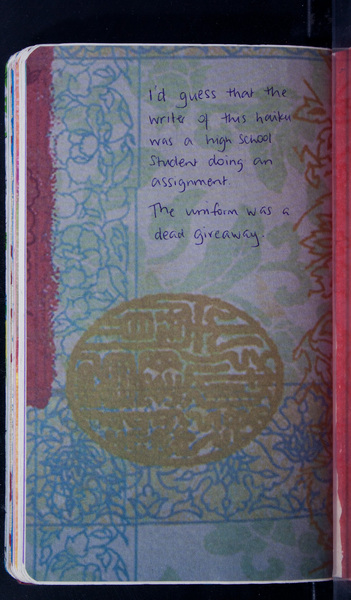 I'd guess that the
writer of this haiku
was a high school
student doing an
assignment.
The uniform was a
dead giveaway.